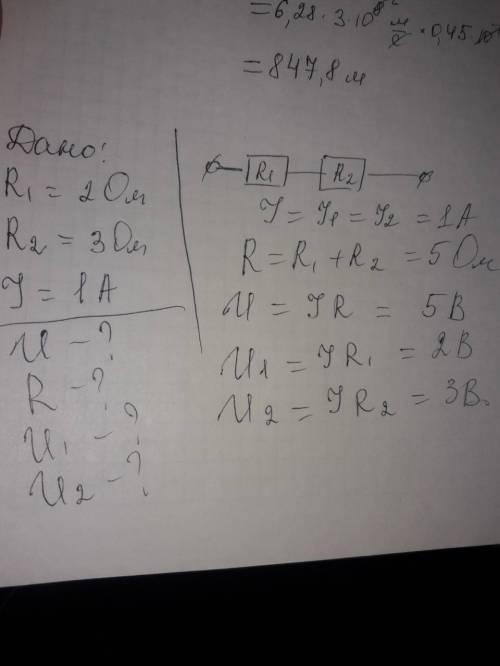 =6,28·3·10⁸ м/с·0,45·10
=847,8 м
Дано:
R₁ = 2 Ом
R₂ = 3 Ом
I = 1 А
U - ?
R - ?
U₁ - ?
U₂ - ?
R₁ R₂
I = I₁ = I₂ = 1 А
R = R₁ + R₂ = 5 Ом
U = IR = 5 В
U₁ = IR₁ = 2 В
U₂ = IR₂ = 3 В.